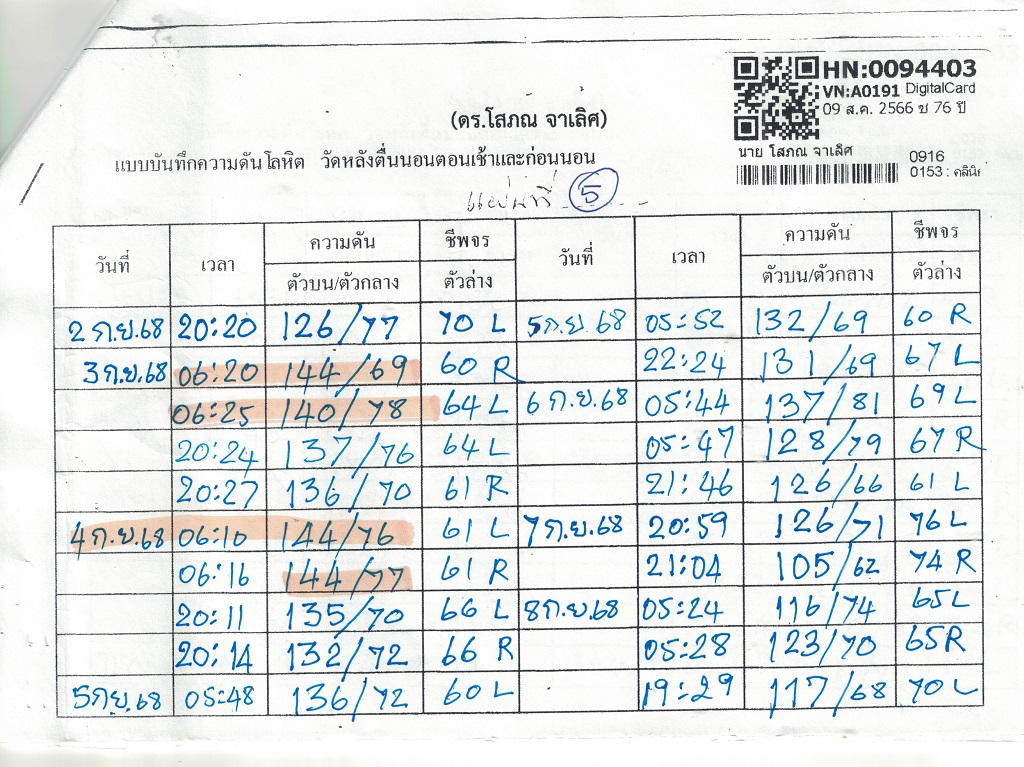 HN:0094403
VN:A0191 DigitalCard
09 ส.ค. 2566 ช 76 ปี
นาย โสภณ จาเลิศ
0916
0153 : คลินิ
(ดร.โสภณ จาเลิศ)
แบบบันทึกความดันโลหิต วัดหลังตื่นนอนตอนเช้าและก่อนนอน
แผ่นที่ 5
วันที่ เวลา ความดัน ชีพจร วันที่ เวลา ความดัน ชีพจร
ตัวบน/ตัวกลาง ตัวล่าง ตัวบน/ตัวกลาง ตัวล่าง
2 ก.ย.68 20:20 126/77 70 L 5 ก.ย. 68 05:52 132/69 60 R
3 ก.ย.68 06:20 144/69 60 R 22:24 131/69 67 L
06:25 140/78 64 L 6 ก.ย.68 05:44 137/81 69 L
20:24 137/76 64 L 05:47 128/79 67 R
20:27 136/70 61 R 21:46 126/66 61 L
4 ก.ย.68 06:10 144/76 61 L 7 ก.ย.68 20:59 126/71 76 L
06:16 144/77 61 R 21:04 105/62 74 R
20:11 135/70 66 L 8 ก.ย.68 05:24 116/74 65 L
20:14 132/72 66 R 05:28 123/70 65 R
5 ก.ย.68 05:48 136/72 60 L 19:29 117/68 70 L